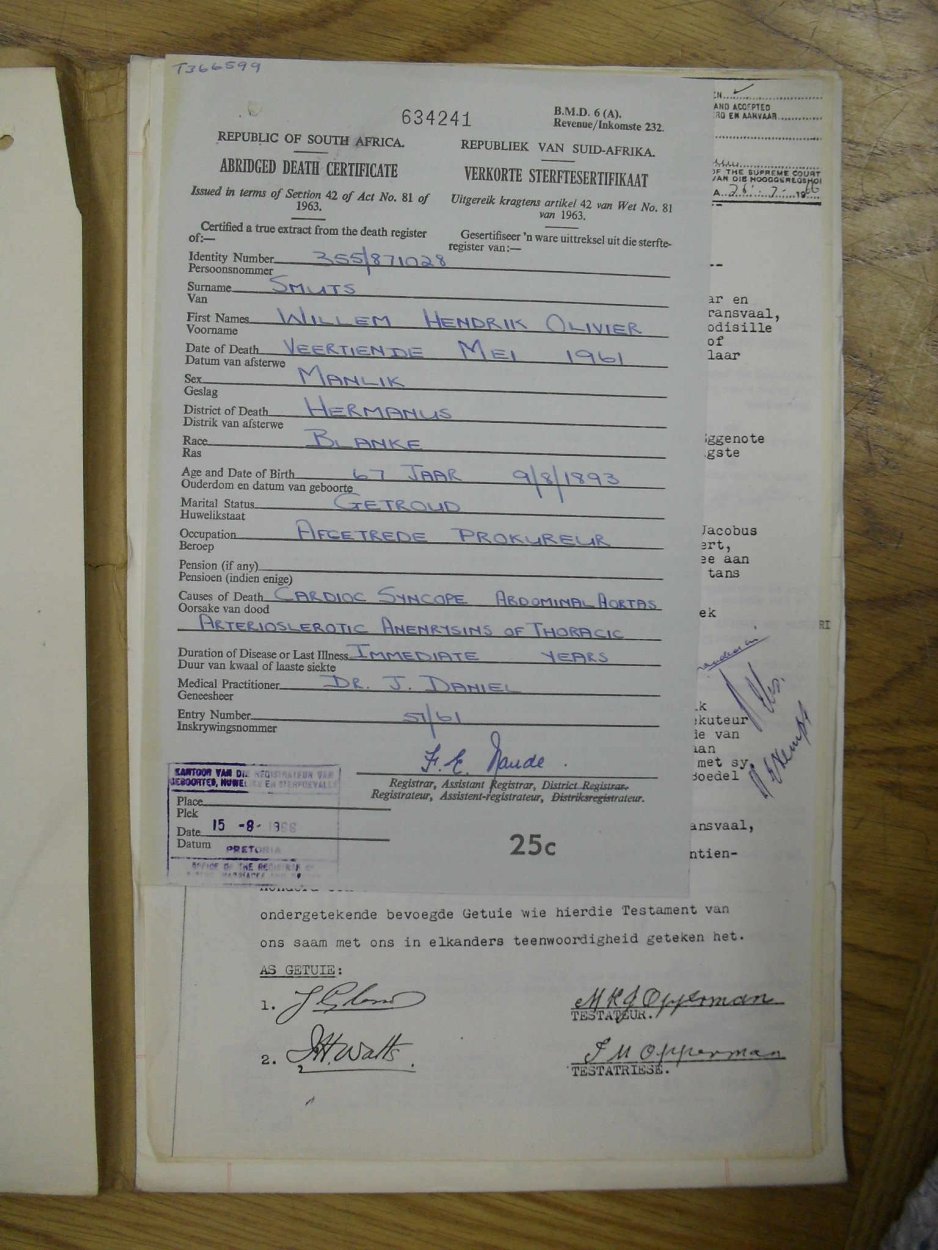 T366599
634241
B.M.D. 6 (A).
Revenue/Inkomste 232.
REPUBLIC OF SOUTH AFRICA.
REPUBLIEK VAN SUID-AFRIKA.
ABRIDGED DEATH CERTIFICATE
VERKORTE STERFTESERTIFIKAAT
Issued in terms of Section 42 of Act No. 81 of
1963.
Uitgereik kragtens artikel 42 van Wet No. 81
van 1963.
Certified a true extract from the death register
of:—
Gesertifiseer 'n ware uittreksel uit die sterfte-
register van:—
Identity Number 355/871028
Persoonsnommer
Surname SMUTS
Van
First Names WILLEM HENDRIK OLIVIER
Voorname
Date of Death VEERTIENDE MEI 1961
Datum van afsterwe
Sex MANLIK
Geslag
District of Death HERMANUS
Distrik van afsterwe
Race BLANKE
Ras
Age and Date of Birth 67 JAAR 9/8/1893
Ouderdom en datum van geboorte
Marital Status GETROUD
Huwelikstaat
Occupation AFGETREDE PROKUREUR
Beroep
Pension (if any)
Pensioen (indien enige)
Causes of Death CARDIOC SYNCOPE ABDOMINAL AORTAS
Oorsake van dood
ARTERIOSLEROTIC ANENRYSINS OF THORACIC
Duration of Disease or Last Illness IMMEDIATE YEARS
Duur van kwaal of laaste siekte
Medical Practitioner DR. J. DANIEL
Geneesheer
Entry Number 51/61
Inskrywingsnommer
F. E. Naude.
Registrar, Assistant Registrar, District Registrar.
Registrateur, Assistent-registrateur, Distriksregistrateur.
KANTOOR VAN DIE REGISTRATEUR VAN
GEBOORTES, HUWELIKE EN STERFGEVALLE
Place
Plek
Date 15 -8- 1966
Datum
PRETORIA
OFFICE OF THE REGISTRAR OF
25c
AND ACCEPTED
EN AANVAAR
OF THE SUPREME COURT
VAN DIE HOOGGEREGSHOF
A. 26-7-1966
ar en
ransvaal,
odisille
of
laar
ggenote
gste
Jacobus
ert,
ee aan
tans
ek
RI
k
ekuteur
ie van
aan
met sy
boedel
ansvaal,
ntien-
ondergetekende bevoegde Getuie wie hierdie Testament van
ons saam met ons in elkanders teenwoordigheid geteken het.
AS GETUIE:
1.
M R J Opperman
TESTATEUR.
2. J H Watts.
J M Opperman
TESTATRIESE.